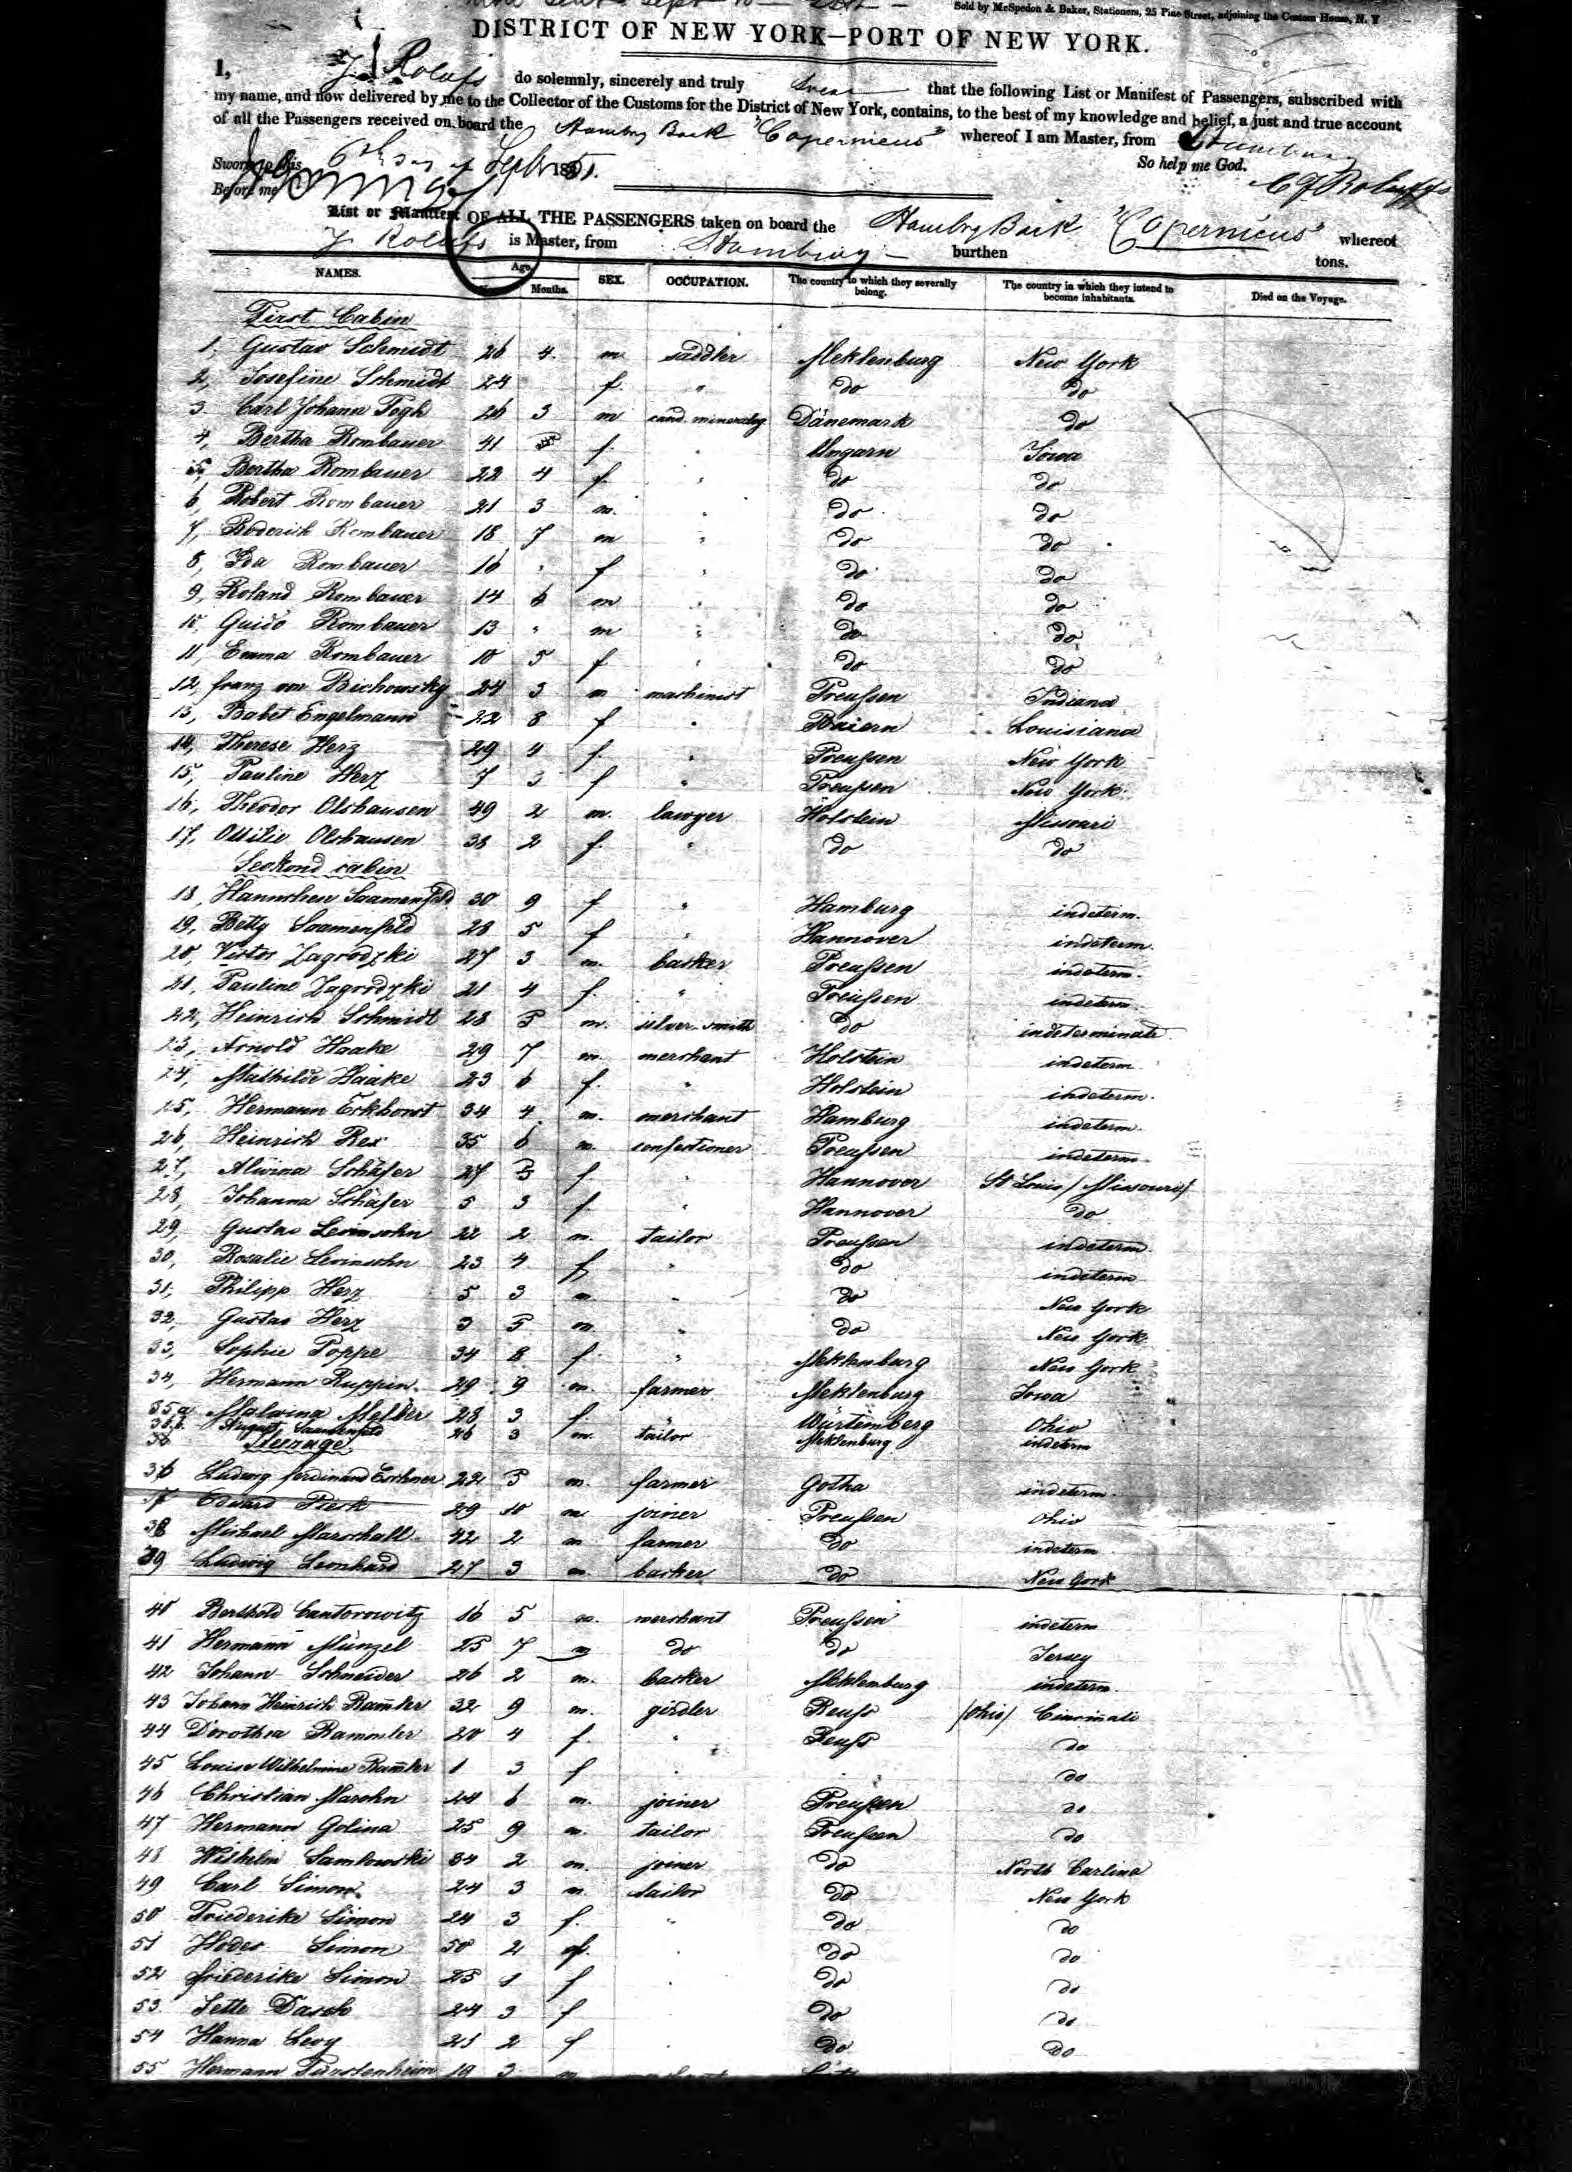 Sold by McSpedon & Baker, Stationers, 25 Pine Street, adjoining the Custom House, N. Y
DISTRICT OF NEW YORK—PORT OF NEW YORK.
I, do solemnly, sincerely and truly swear that the following List or Manifest of Passengers, subscribed with
my name, and now delivered by me to the Collector of the Customs for the District of New York, contains, to the best of my knowledge and belief, a just and true account
of all the Passengers received on board the Hambrg Bark "Copernicus" whereof I am Master, from Hamburg
Sworn to this 6th Day of Septbr 1851. So help me God.
Before me
List or Manifest OF ALL THE PASSENGERS taken on board the Hambrg Bark "Copernicus" whereof
is Master, from Hamburg burthen tons.
NAMES. Age. Months. SEX. OCCUPATION. The country to which they severally belong. The country in which they intend to become inhabitants. Died on the Voyage.
First Cabin
1, Gustav Schmidt 26 4. m saddler Meklenburg New York
2, Josefine Schmidt 24 f. " do do
3 Carl Johann Fogh 26 3 m cand. mineralog Dänemark do
4, Bertha Rombauer 41 f. " Ungarn Iowa
5, Bertha Rombauer 22 4 f. " do do
6, Robert Rombauer 21 3 m. " do do
7, Roderich Rombauer 18 7 m " do do
8, Ida Rombauer 16 " f " do do
9, Roland Rombauer 14 6 m " do do
10, Guido Rombauer 13 " m " do do
11, Emma Rombauer 10 5 f " do do
12, franz von Bichowsky 24 3 m mashinist Preußen Indiana
13, Babet Engelmann 22 8 f " Baiern Louisiana
14, Therese Herz 29 4 f. " Preußen New York
15, Pauline Herz 7 3 f " Preußen New York
16, Theodor Olshausen 49 2 m. lawyer Holstein Missouri
17, Ottilie Olshausen 38 2 f. " do do
Seckond cabin
18, Hannchen Saamenfeld 30 9 f " Hamburg indeterm.
19, Betty Saamenfeld 28 5 f " Hannover indeterm.
20, Victor Zagrodzki 27 3 m. backer Preußen indeterm.
21, Pauline Zagrodzki 21 4 f. " Preußen indeterm.
22, Heinrich Schmidt 28 5 m. silver smith do indeterminate
23, Arnold Haake 29 7 m. merchant Holstein indeterm
24, Mathilde Haake 23 6 f. " Holstein indeterm.
25, Hermann Eckhorst 34 4 m. merchant Hamburg indeterm.
26, Heinrich Rex 35 6 m. confectioner Preußen indeterm.
27, Alwina Schäfer 27 5 f. " Hannover St Louis /Missouri/
28, Johanna Schäfer 5 3 f. " Hannover do
29, Gustav Levinsohn 22 2 m. tailor Preußen indeterm.
30, Rosalie Levinsohn 23 4 f " do indeterm
31, Philipp Herz 5 3 m " do New York
32, Gustav Herz 3 5 m. " do New York
33, Sophie Poppe 34 8 f. " Meklenburg New York
34, Hermann Ruppin. 29 9 m. farmer Meklenburg Iowa
35a Malwina Melber 28 3 f. " Würtemberg Ohio
35b August Saamenfeld 26 3 m. tailor Meklenburg indeterm
Sterrage
36 Ludwig ferdinand Eschner 22 5 m. farmer Gotha indeterm.
37 Edward Pieck 29 10 m joiner Preußen Ohio
38 Michael Marschall 42 2 m farmer do indeterm
39 Ludwig Leonhard 27 3 m. backer do New York
40 Berthold Cantorowitz 16 5 m. merchant Preußen indeterm
41 Hermann Münzel 25 7 m do do Jersey
42 Johann Schneider 26 2 m. backer Meklenburg indeterm.
43 Johann Heinrich Ramler 32 9 m. girdler Reuß /Ohio/ Cincinati
44 Dorothea Rammler 20 4 f. " Reuß do
45 Louise Wilhelmine Ramler 1 3 f do
46 Christian Marohn 24 6 m. joiner Preußen do
47 Hermann Golina 25 9 m. tailor Preußen do
48 Wilhelm Samkowski 34 2 m. joiner do North Carlina
49 Carl Simon. 24 3 m. tailor do New York
50 Friederike Simon 24 3 f. " do do
51 Hodes Simon 50 2 f. do do
52 friederike Simon 25 1 f do do
53 Jette Dasch 24 3 f do do
54 Hanna Levy 21 2 f do do
55 Hermann Fürstenheim 19 3 m